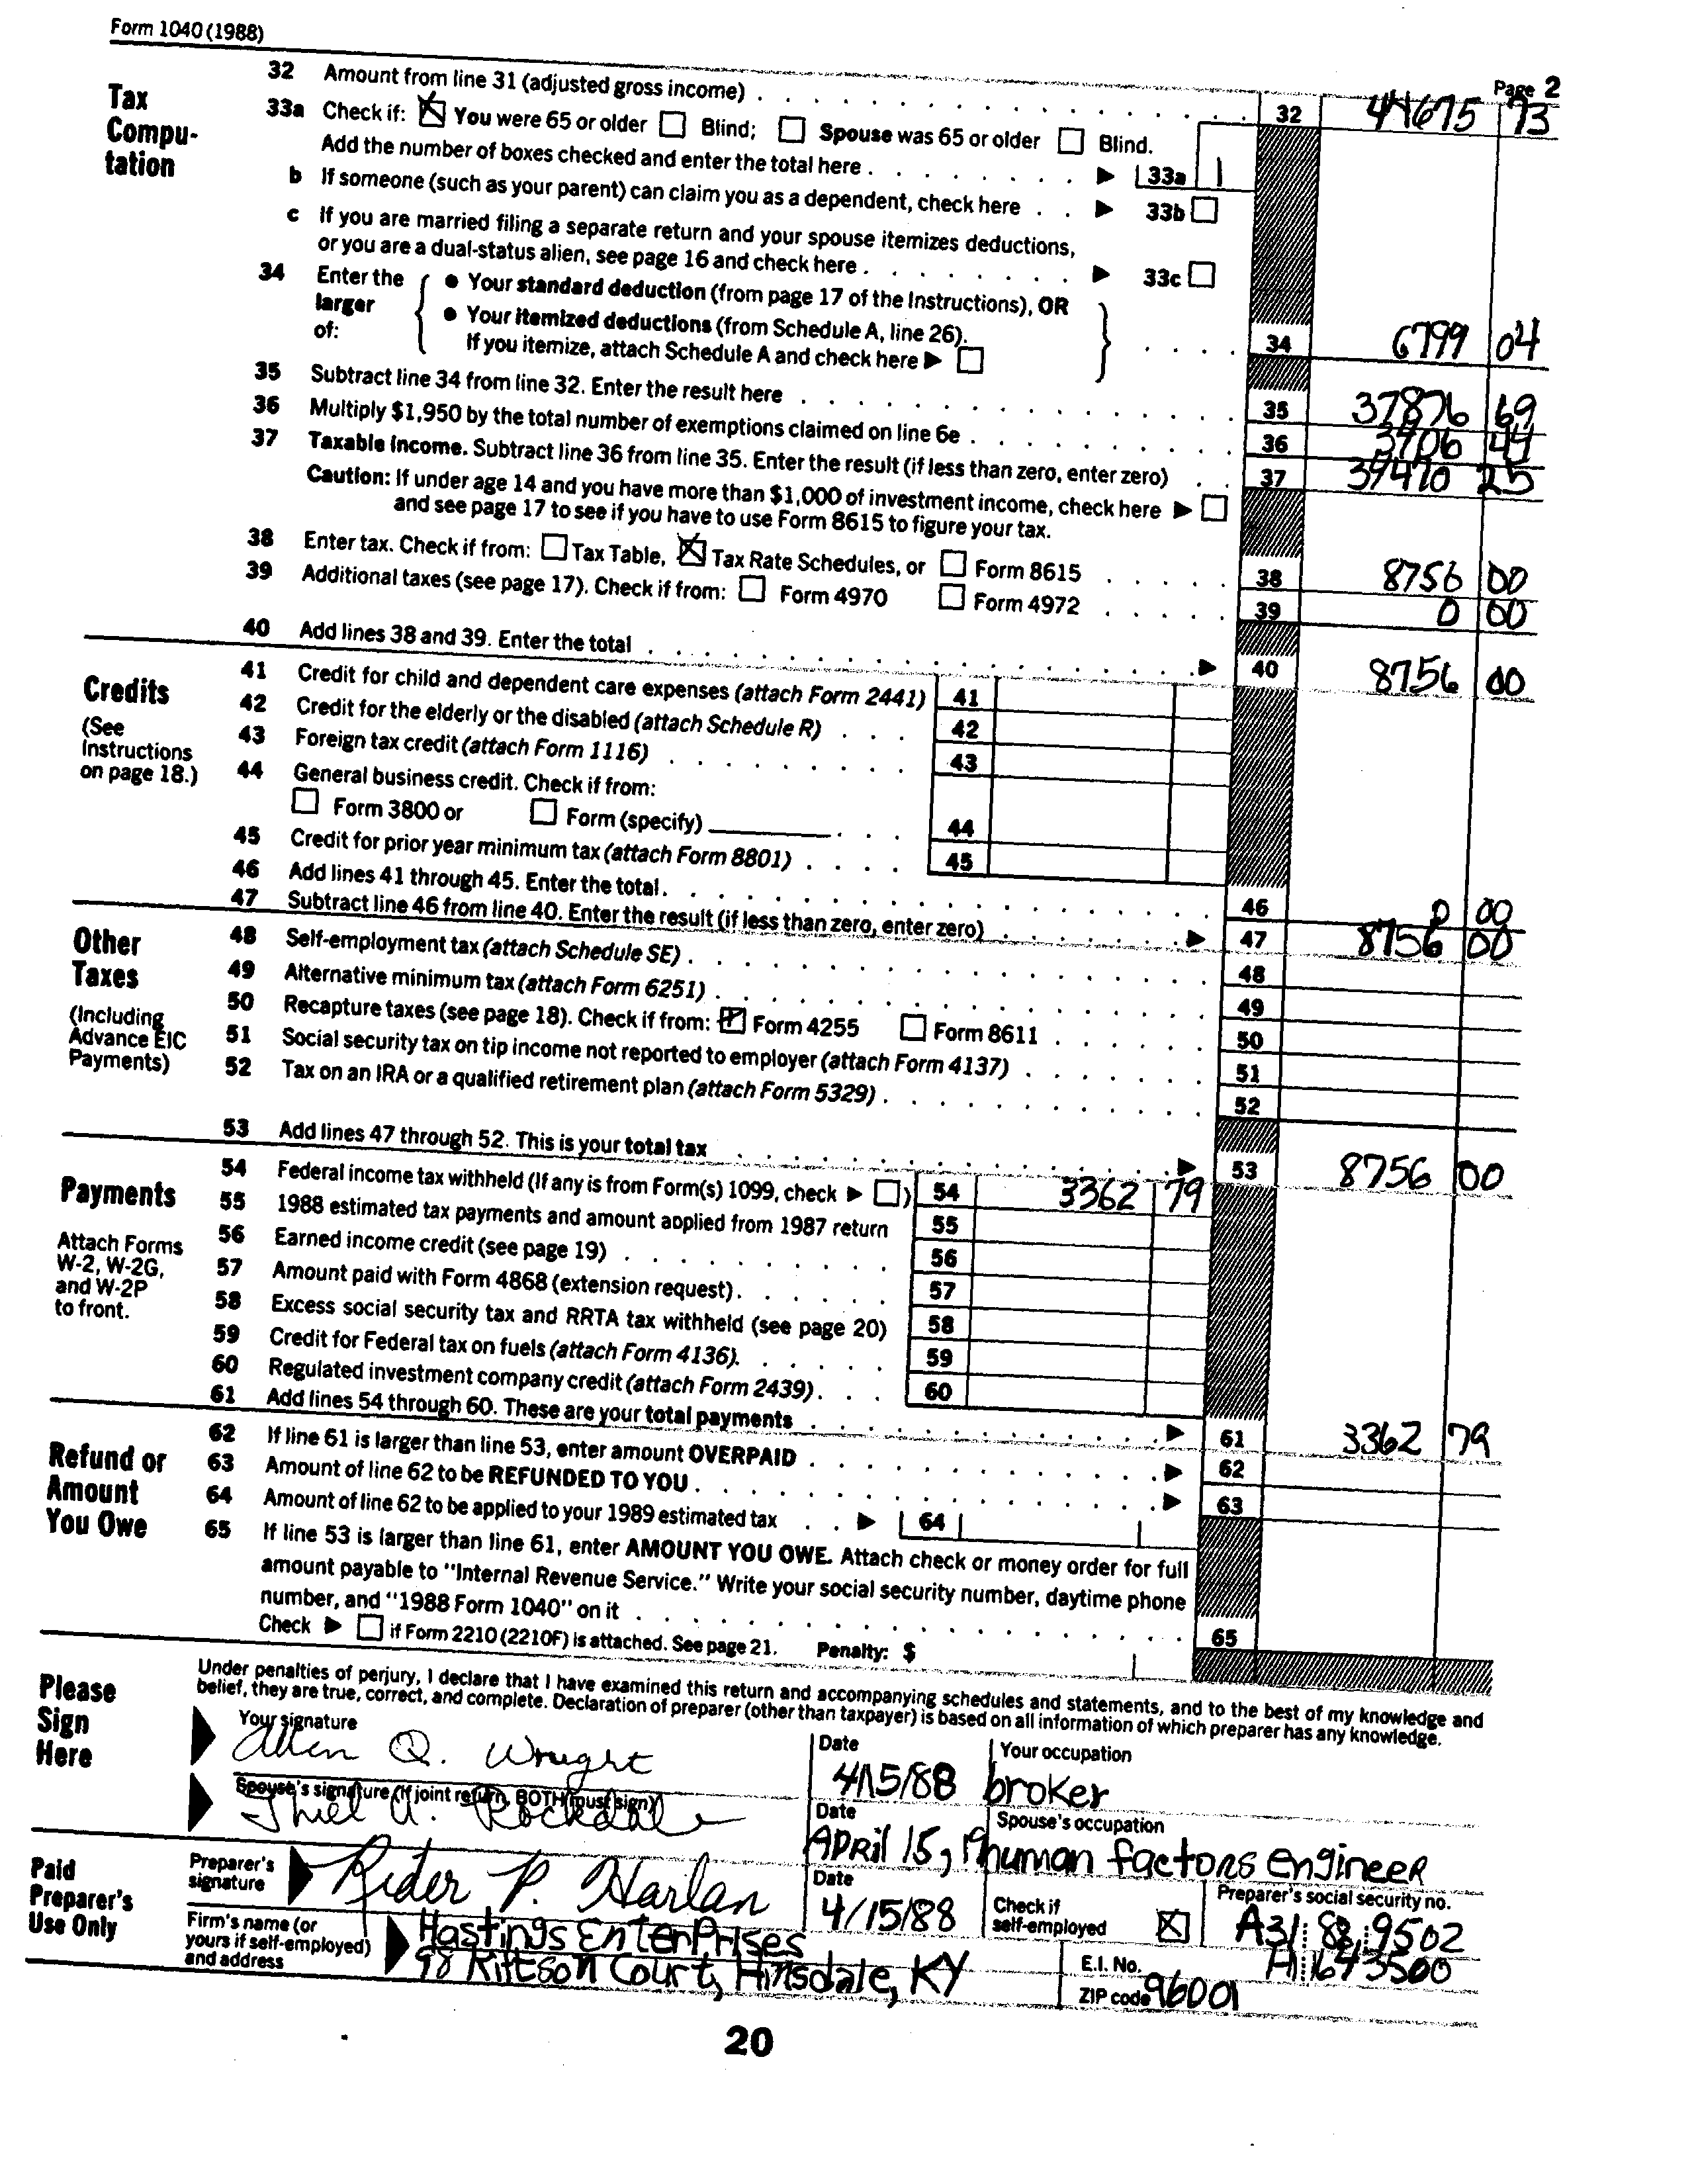 Form 1040 (1988)
Page 2
Tax Compu-tation
32 Amount from line 31 (adjusted gross income) 32 44675 73
33a Check if: ☒ You were 65 or older ☐ Blind; ☐ Spouse was 65 or older ☐ Blind.
Add the number of boxes checked and enter the total here ▶ 33a 1
b If someone (such as your parent) can claim you as a dependent, check here ▶ 33b ☐
c If you are married filing a separate return and your spouse itemizes deductions,
or you are a dual-status alien, see page 16 and check here ▶ 33c ☐
34 Enter the larger of:
• Your standard deduction (from page 17 of the Instructions), OR
• Your itemized deductions (from Schedule A, line 26).
If you itemize, attach Schedule A and check here ▶ ☐
34 6799 04
35 Subtract line 34 from line 32. Enter the result here 35 37876 69
36 Multiply $1,950 by the total number of exemptions claimed on line 6e 36 44
37 Taxable income. Subtract line 36 from line 35. Enter the result (if less than zero, enter zero) 37 25
Caution: If under age 14 and you have more than $1,000 of investment income, check here ▶ ☐
and see page 17 to see if you have to use Form 8615 to figure your tax.
38 Enter tax. Check if from: ☐ Tax Table, ☒ Tax Rate Schedules, or ☐ Form 8615 38 8756 00
39 Additional taxes (see page 17). Check if from: ☐ Form 4970 ☐ Form 4972 39 0 00
40 Add lines 38 and 39. Enter the total ▶ 40 8756 00
Credits
(See Instructions on page 18.)
41 Credit for child and dependent care expenses (attach Form 2441) 41
42 Credit for the elderly or the disabled (attach Schedule R) 42
43 Foreign tax credit (attach Form 1116) 43
44 General business credit. Check if from:
☐ Form 3800 or ☐ Form (specify) 44
45 Credit for prior year minimum tax (attach Form 8801) 45
46 Add lines 41 through 45. Enter the total 46 0 00
47 Subtract line 46 from line 40. Enter the result (if less than zero, enter zero) ▶ 47 8756 00
Other Taxes
(Including Advance EIC Payments)
48 Self-employment tax (attach Schedule SE) 48
49 Alternative minimum tax (attach Form 6251) 49
50 Recapture taxes (see page 18). Check if from: ☒ Form 4255 ☐ Form 8611 50
51 Social security tax on tip income not reported to employer (attach Form 4137) 51
52 Tax on an IRA or a qualified retirement plan (attach Form 5329) 52
53 Add lines 47 through 52. This is your total tax ▶ 53 8756 00
Payments
Attach Forms W-2, W-2G, and W-2P to front.
54 Federal income tax withheld (If any is from Form(s) 1099, check ▶ ☐) 54 3362 79
55 1988 estimated tax payments and amount applied from 1987 return 55
56 Earned income credit (see page 19) 56
57 Amount paid with Form 4868 (extension request) 57
58 Excess social security tax and RRTA tax withheld (see page 20) 58
59 Credit for Federal tax on fuels (attach Form 4136) 59
60 Regulated investment company credit (attach Form 2439) 60
61 Add lines 54 through 60. These are your total payments ▶ 61 3362 79
Refund or Amount You Owe
62 If line 61 is larger than line 53, enter amount OVERPAID ▶ 62
63 Amount of line 62 to be REFUNDED TO YOU ▶ 63
64 Amount of line 62 to be applied to your 1989 estimated tax ▶ 64
65 If line 53 is larger than line 61, enter AMOUNT YOU OWE. Attach check or money order for full
amount payable to "Internal Revenue Service." Write your social security number, daytime phone
number, and "1988 Form 1040" on it 65
Check ▶ ☐ if Form 2210 (2210F) is attached. See page 21. Penalty: $
Please Sign Here
Under penalties of perjury, I declare that I have examined this return and accompanying schedules and statements, and to the best of my knowledge and
belief, they are true, correct, and complete. Declaration of preparer (other than taxpayer) is based on all information of which preparer has any knowledge.
Your signature Date Your occupation
Allen Q. Wright 4/15/88 broker
Spouse's signature (if joint return, BOTH must sign) Date Spouse's occupation
U. Rockdale APRil 15, 19 human factors engineeR
Paid Preparer's Use Only
Preparer's signature Date Check if self-employed ☒ Preparer's social security no.
Rider P. Harlan 4/15/88 A31 88 9502
Firm's name (or yours if self-employed) and address
Hastings EnterPrises E.I. No. 1643500
98 Kittson Court, Hinsdale, KY ZIP code 96001
20